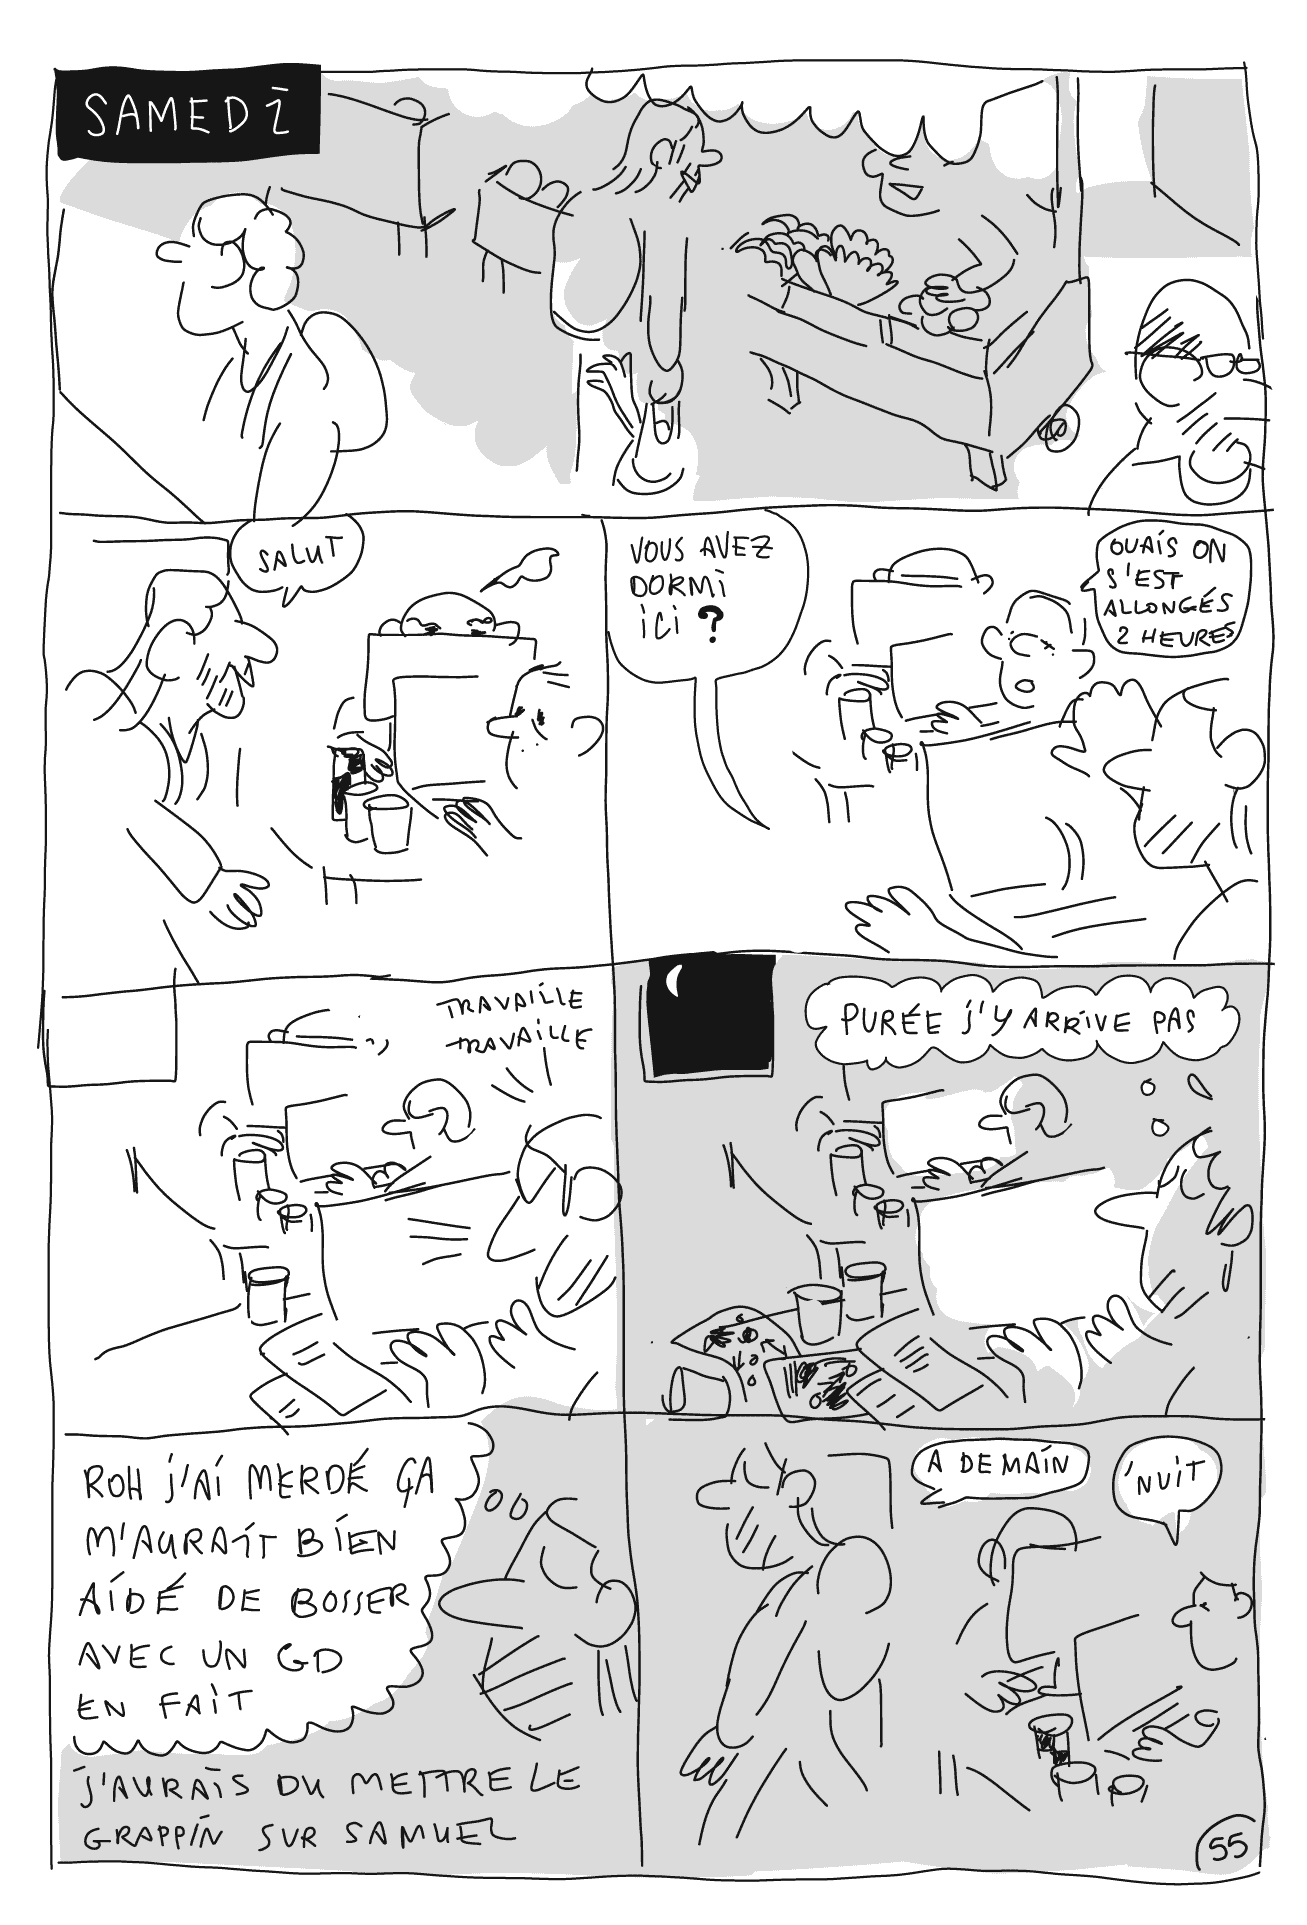 SAMEDI
SALUT
VOUS AVEZ
DORMI
ICI ?
OUAIS ON
S'EST
ALLONGÉS
2 HEURES
TRAVAILLE
TRAVAILLE
PURÉE J'Y ARRIVE PAS
ROH J'AI MERDÉ ÇA
M'AURAIT BIEN
AIDÉ DE BOSSER
AVEC UN GD
EN FAIT
J'AURAIS DU METTRE LE
GRAPPIN SUR SAMUEL
A DEMAIN
'NUIT
55